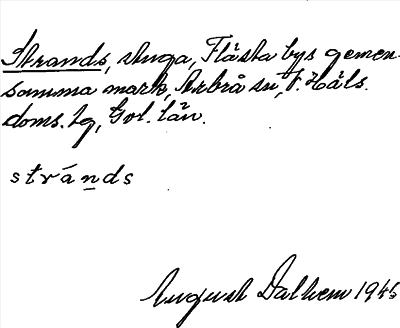 Strands, stuga, Flästa bys gemen-
samma mark, Arbrå sn, V. Häls.
doms. bg, Gvl. län.
stránds
August Dalhem 1945